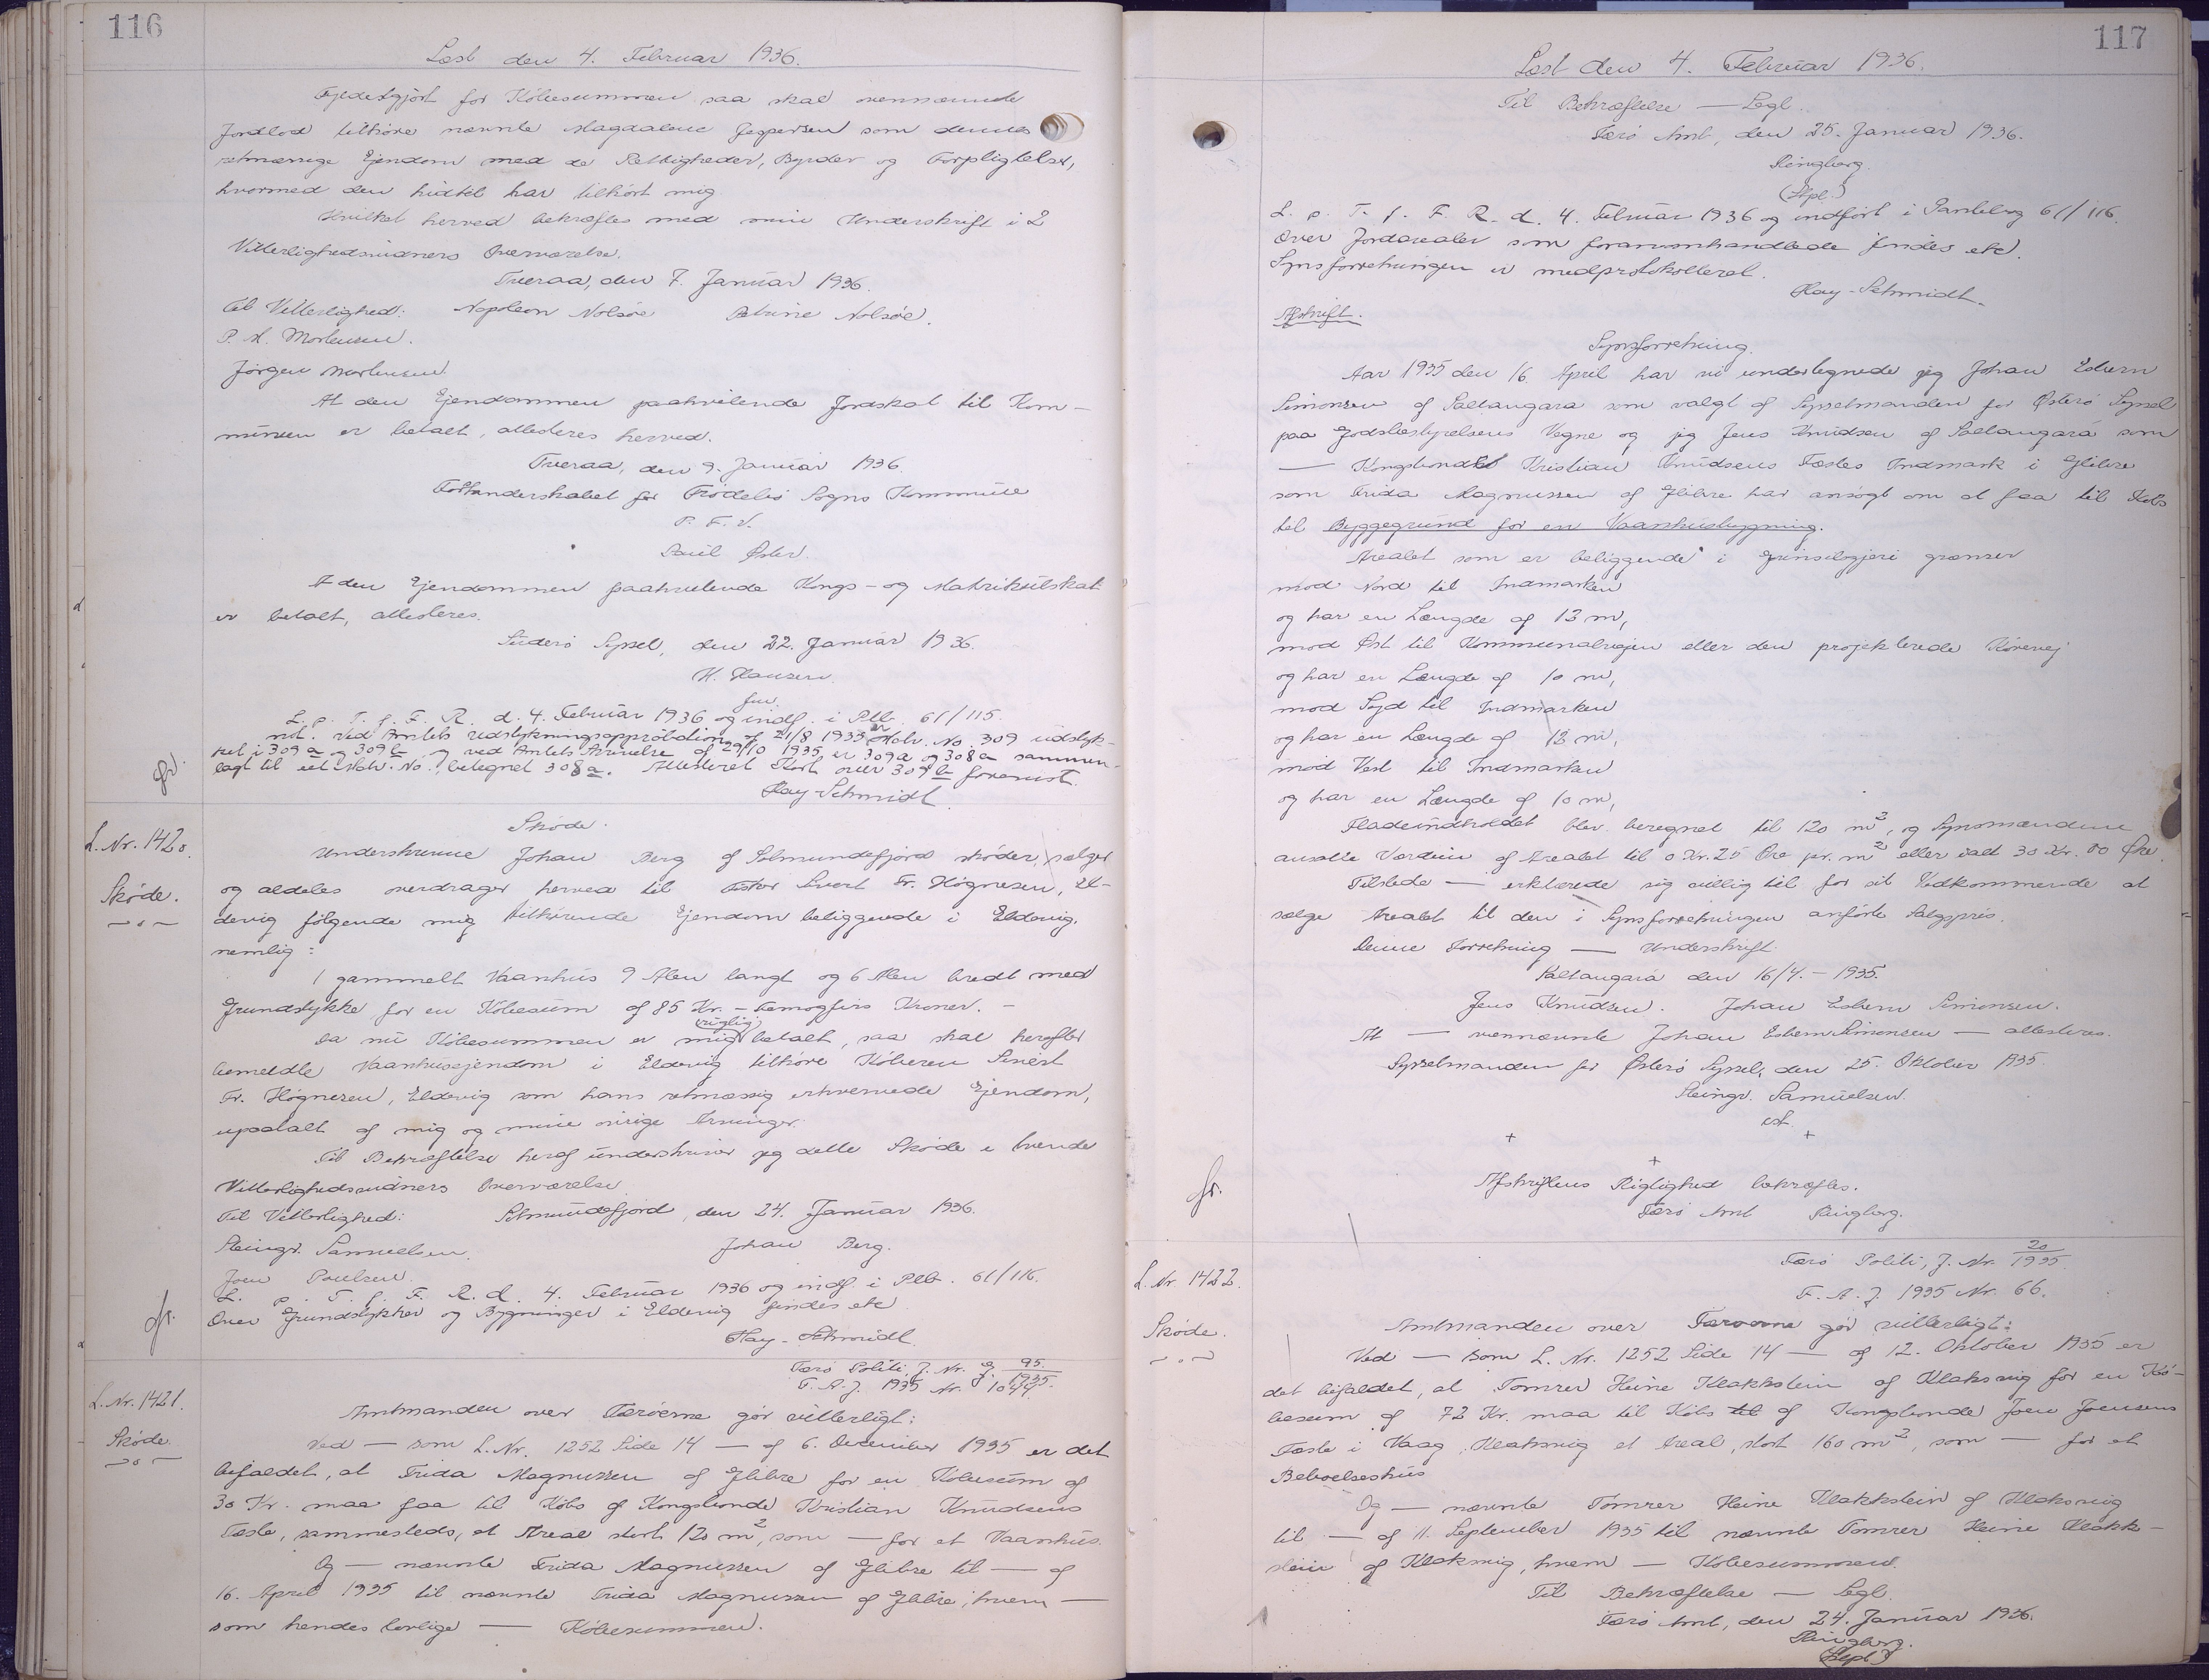 116
Læst den 4. Februar 1936.
Fyldestgjort for Köbesummen saa skal ovennævnte
Jordlod tilhöre nævnte Magdalene Jespersen som dennes
retmæssige Ejendom med de Rettigheder, Byrder og Forpligtelser,
hvormed den hidtil har tilhört mig.
Hvilket herved bekræftes med min Underskrift i 2
Vitterlighedsvidners Overværelse.
Tveraa, den 7. Januar 1936.
Til Vitterlighed: Napoleon Nolsöe Petrine Nolsöe.
P. M. Mortensen.
Jörgen Mortensen.
At den Ejendommen paahvilende Jordskat til Kom-
munen er betalt, attesteres herved.
Tveraa, den 9. Januar 1936.
Forstanderskabet for Frodebö Sogns Kommune
P. F. V.
Poul Öster.
At den Ejendommen paahvilende Kongs- og Matrikulskat
er betalt, attesteres.
Suderö Syssel, den 22. Januar 1936.
H. Hansen
fm.
L. p. T. f. F. R. d. 4. Februar 1936 og indf. i Ptb. 61/115.
not. Ved Amtets Udstykningsapprobation af 21/8 1933 er Matr. No. 309 udstyk-
ket i 309 a og 309 b og ved Amtets Anviselse af 29/10 1935 er 309 a og 308 a sammen-
lagt til eet Matr. No., betegnet 308 a. Attesteret Kort over 309 b forevist.
Hay-Schmidt.
L. Nr. 1420.
Sköde.
Sköde.
Underskrevne Johan Berg af Solmundefjord sköder, sælger
og aldeles overdrager herved til Fisker Sivert Fr. Högnesen, El-
devig fölgende mig tilhörende Ejendom beliggende i Eldevig.
nemlig:
1 gammelt Vaanhus 9 Alen langt og 6 Alen bredt med
Grundstykke for en Köbesum af 85 Kr. - femogfirs Kroner. -
Da nu Köbesummen er mig rigtig betalt, saa skal herefter
bemeldte Vaanhusejendom i Eldevig tilhöre Köberen Sivert
Fr. Högnesen, Eldevig som hans retmæssig erhvervede Ejendom,
upaatalt af mig og mine övrige Arvinger.
Til Bekræftelse heraf underskriver jeg dette Sköde i tvende
Vitterlighedsvidners Overværelse
Til Vitterlighed: Solmundefjord, den 24. Januar 1936.
Steingr. Samuelsen. Johan Berg.
Joen Poulsen.
L. p. T. f. F. R. d. 4. Februar 1936 og indf. i Ptb. 61/116.
Over Grundstykker og Bygninger i Eldevig findes etc
Hay-Schmidt
L. Nr. 1421.
Sköde.
Færö Politi, J. Nr. 95/1935.
F. A. J. 1935 Nr. 1044.
Amtmanden over Færöerne gör vitterligt:
Ved — som L. Nr. 1252 Side 14 — af 6. December 1935 er det
befaldet, at Frida Magnussen af Glibre for en Köbesum af
30 Kr. maa faa til Köbs af Kongsbonde Kristian Knudsens
Fæste, sammesteds, et Areal stort 120 m², som — for et Vaanhus.
Og — nævnte Frida Magnussen af Glibre til — af
16. April 1935 til nævnte Frida Magnussen af Glibre, hvem —
som hendes lovlige — Köbesummen.
117
Læst den 4. Februar 1936.
Til Bekræftelse — Segl.
Færö Amt, den 25. Januar 1936.
Ringberg.
(Stpl.)
L. p. T. f. F. R. d. 4. Februar 1936 og indfört i Pantebog 61/116.
Over Jordarealer som foranomhandlede findes etc.
Synsforretningen er medprotokolleret.
Hay-Schmidt.
Afskrift.
Synsforretning.
Aar 1935 den 16. April har vi undertegnede jeg Johan Esbern
Simonsen af Saltangara som valgt af Sysselmanden for Österö Syssel
paa Jordsbestyrelsens Vegne og jeg Jens Knudsen af Saltangará som
— Kongsbonde Kristian Knudsens Fæstes Indmark i Glibre
som Frida Magnussen af Glibre har ansögt om at faa til Köbs
til Byggegrund for en Vaanhusbygning.
Arealet som er beliggende i grænser
mod Nord til Indmarken
og har en Længde af 12 m,
mod Öst til Kommunalvejen eller den projekterede Körevej
og har en Længde af 10 m,
mod Syd til Indmarken
og har en Længde af 12 m,
mod Vest til Indmarken
og har en Længde af 10 m,
Fladeindholdet blev beregnet til 120 m², og Synsmændene
ansatte Værdien af Arealet til 0 Kr. 25 Öre pr. m² eller ialt 30 Kr. 00 Öre.
Tilstede — erklærede sig villig til for sit Vedkommende at
sælge Arealet til den i Synsforretningen anförte Salgspris.
Denne Forretning — Underskrift.
Saltangará den 16/4. - 1935.
Jens Knudsen. Johan Esbern Simonsen.
At — nævnte Johan Esbern Simonsen — attesteres.
Sysselmanden for Österö Syssel, den 25. Oktober 1935.
Steingr. Samuelsen.
est.
+ +
+
Afskriftens Rigtighed bekræftes.
Færö Amt Ringberg.
L. Nr. 1422.
Sköde.
Færö Politi, J. Nr. 20/1935
F. A. J. 1935 Nr. 66.
Amtmanden over Færöerne gör vitterligt:
Ved — som L. Nr. 1252 Side 14 — af 12. Oktober 1935 er
det befaldet, at Tömrer Heine Klakkstein af Klaksvig for en Kö-
besum af 72 Kr. maa til Köbs til af Kongsbonde Joen Joensens
Fæste i Vaag, Klaksvig et Areal, stort 160 m², som — for et
Beboelseshus
Og — nævnte Tömrer Heine Klakkstein af Klaksvig
til — af 11. September 1935 til nævnte Tömrer Heine Klakk-
stein af Klaksvig, hvem — Köbesummen.
Til Bekræftelse — Segl.
Færö Amt, den 24. Januar 1936.
Ringberg.
(Stpl.)